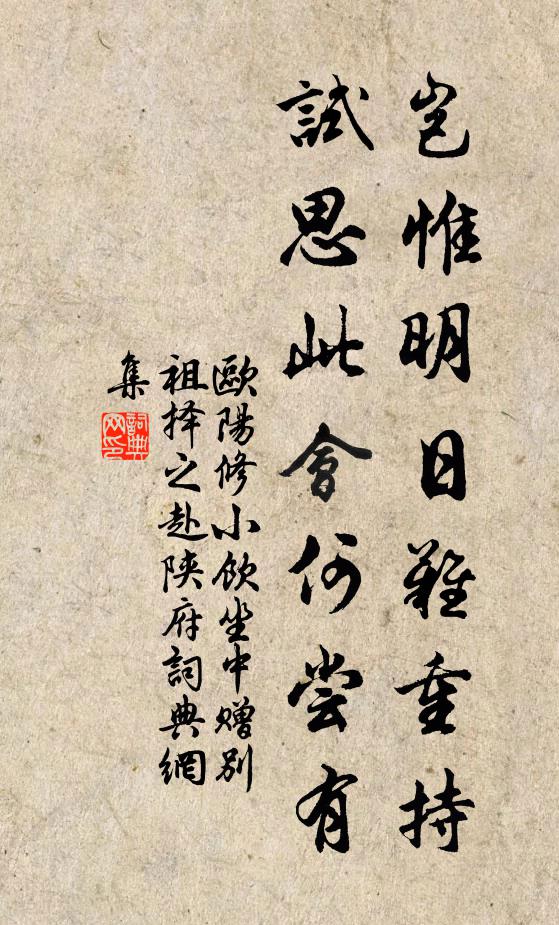 豈惟明日難重持
試思此會何嘗有
歐陽修小飲坐中贈別
祖择之赴陕府詞典網
集
詞典
网印